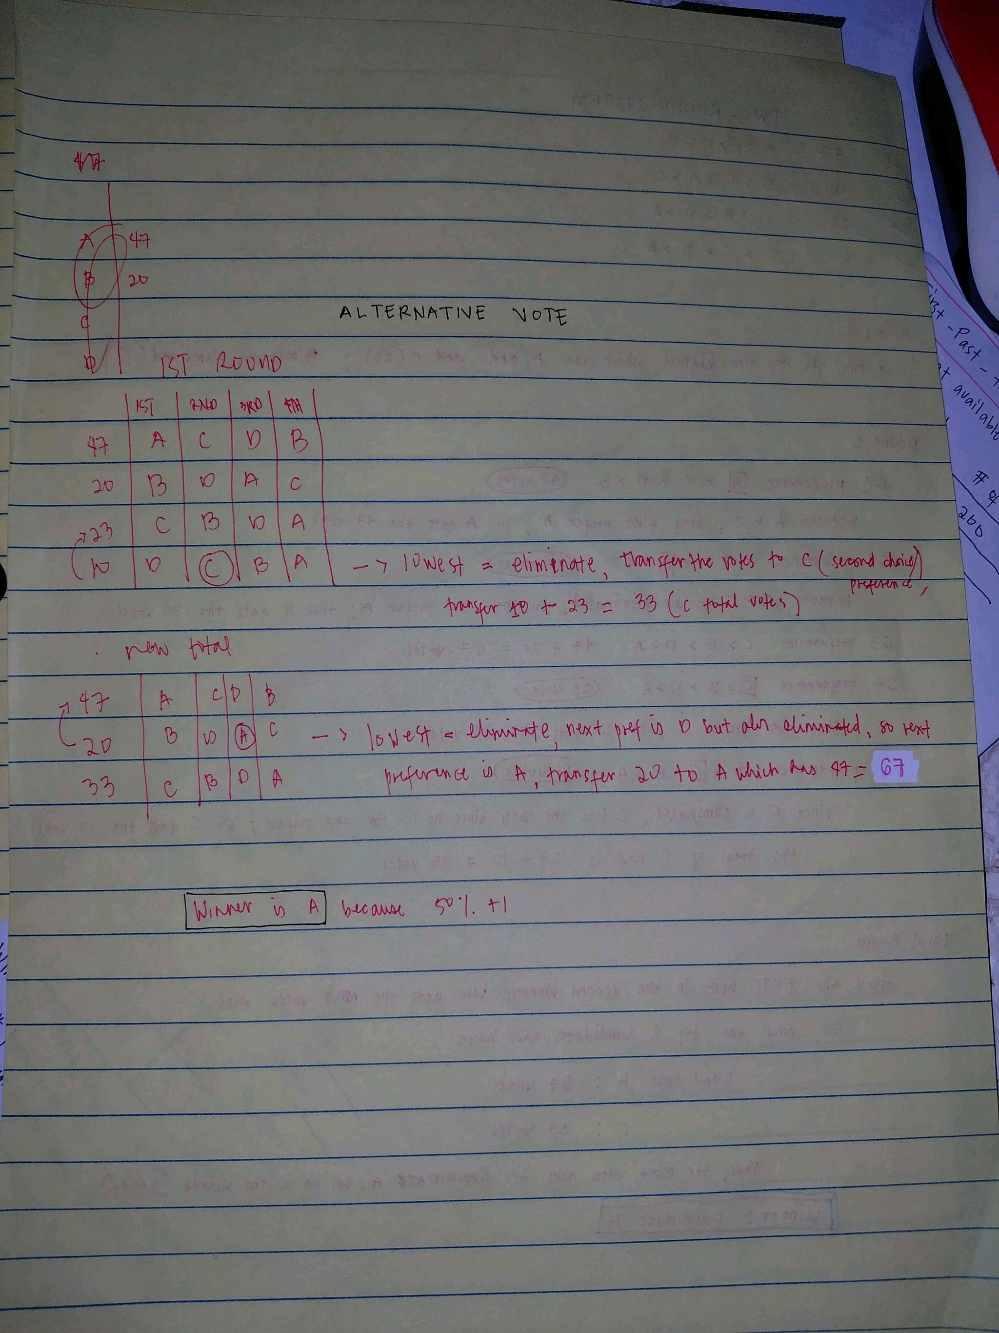 A 47
B 20
C
D
ALTERNATIVE VOTE
1ST ROUND
1ST 2ND 3RD 4TH
47 A C D B
20 B D A C
23 C B D A
10 D C B A -> lowest = eliminate, transfer the votes to C (second choice)
preference,
transfer 10 + 23 = 33 (C total votes)
new total
47 A C D B
20 B D A C -> lowest = eliminate, next pref is D but alr eliminated, so next
33 C B D A preference is A, transfer 20 to A which has 47 = 67
Winner is A because 50% +1
First - Past - T
t available
# of
200